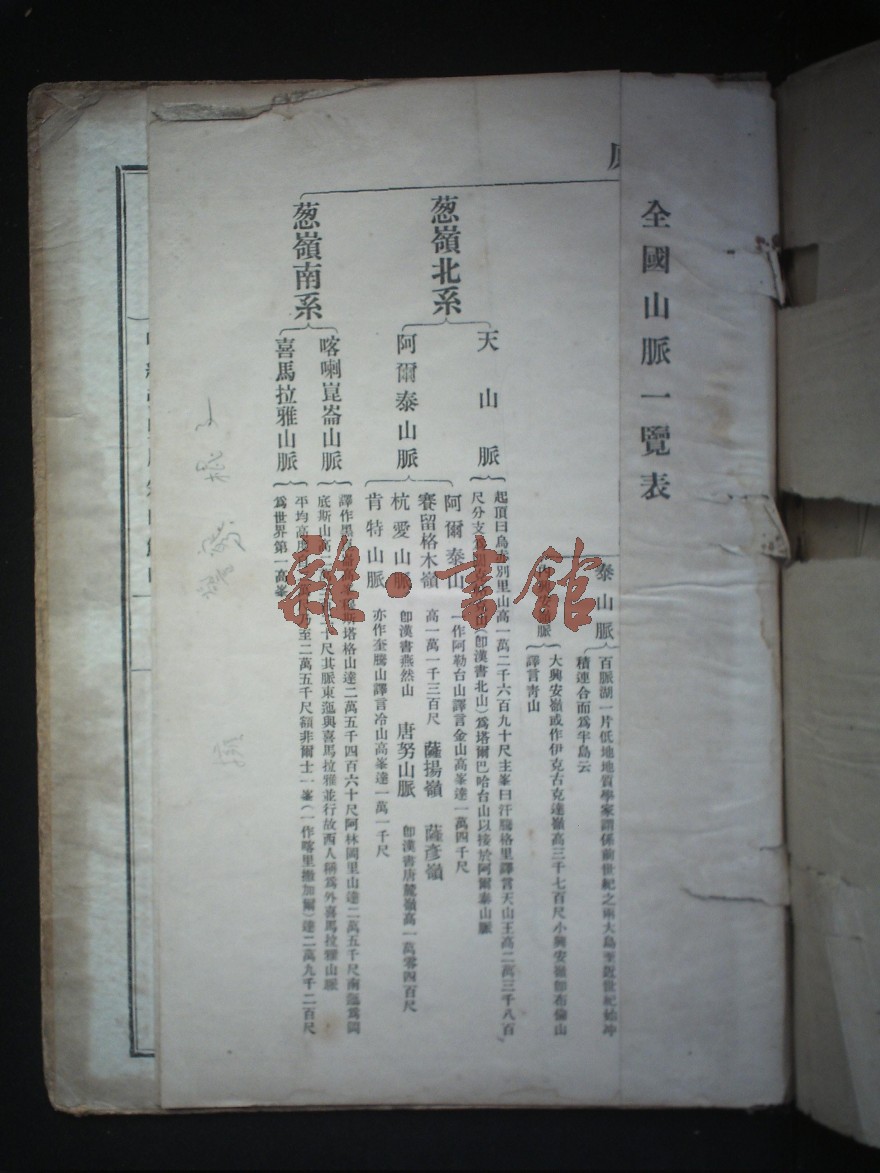 全國山脈一覽表
泰山脈
百脈湖一片低地地質學家謂係前世紀之兩大島至近世紀始冲
積連合而爲半島云
大興安嶺或作伊克古克達嶺高三千七百尺小興安嶺卽布倫山
譯言靑山
葱嶺北系
天山脈
起頂曰烏赤別里山高一萬二千六百九十尺主峯曰汗騰格里譯言天山王高二萬三千八百
尺分支山(卽漢書北山)爲塔爾巴哈台山以接於阿爾泰山脈
阿爾泰山脈
阿爾泰山
一作阿勒台山譯言金山高峯達一萬四千尺
賽留格木嶺
高一萬一千三百尺 薩揚嶺 薩彥嶺
杭愛山脈
卽漢書燕然山 唐努山脈 卽漢書唐麓嶺高一萬零四百尺
肯特山脈
亦作奎騰山譯言冷山高峯達一萬一千尺
葱嶺南系
喀喇崑崙山脈
譯作黑斯塔格山達二萬五千四百六十尺阿林岡里山達二萬五千尺南迤爲岡
底斯山高一十尺其脈東迤與喜馬拉雅並行故西人稱爲外喜馬拉雅山脈
喜馬拉雅山脈
平均高度至二萬五千尺額非爾士一峯(一作喀里撤加爾)達二萬九千二百尺
爲世界第一高峯
雜·書館